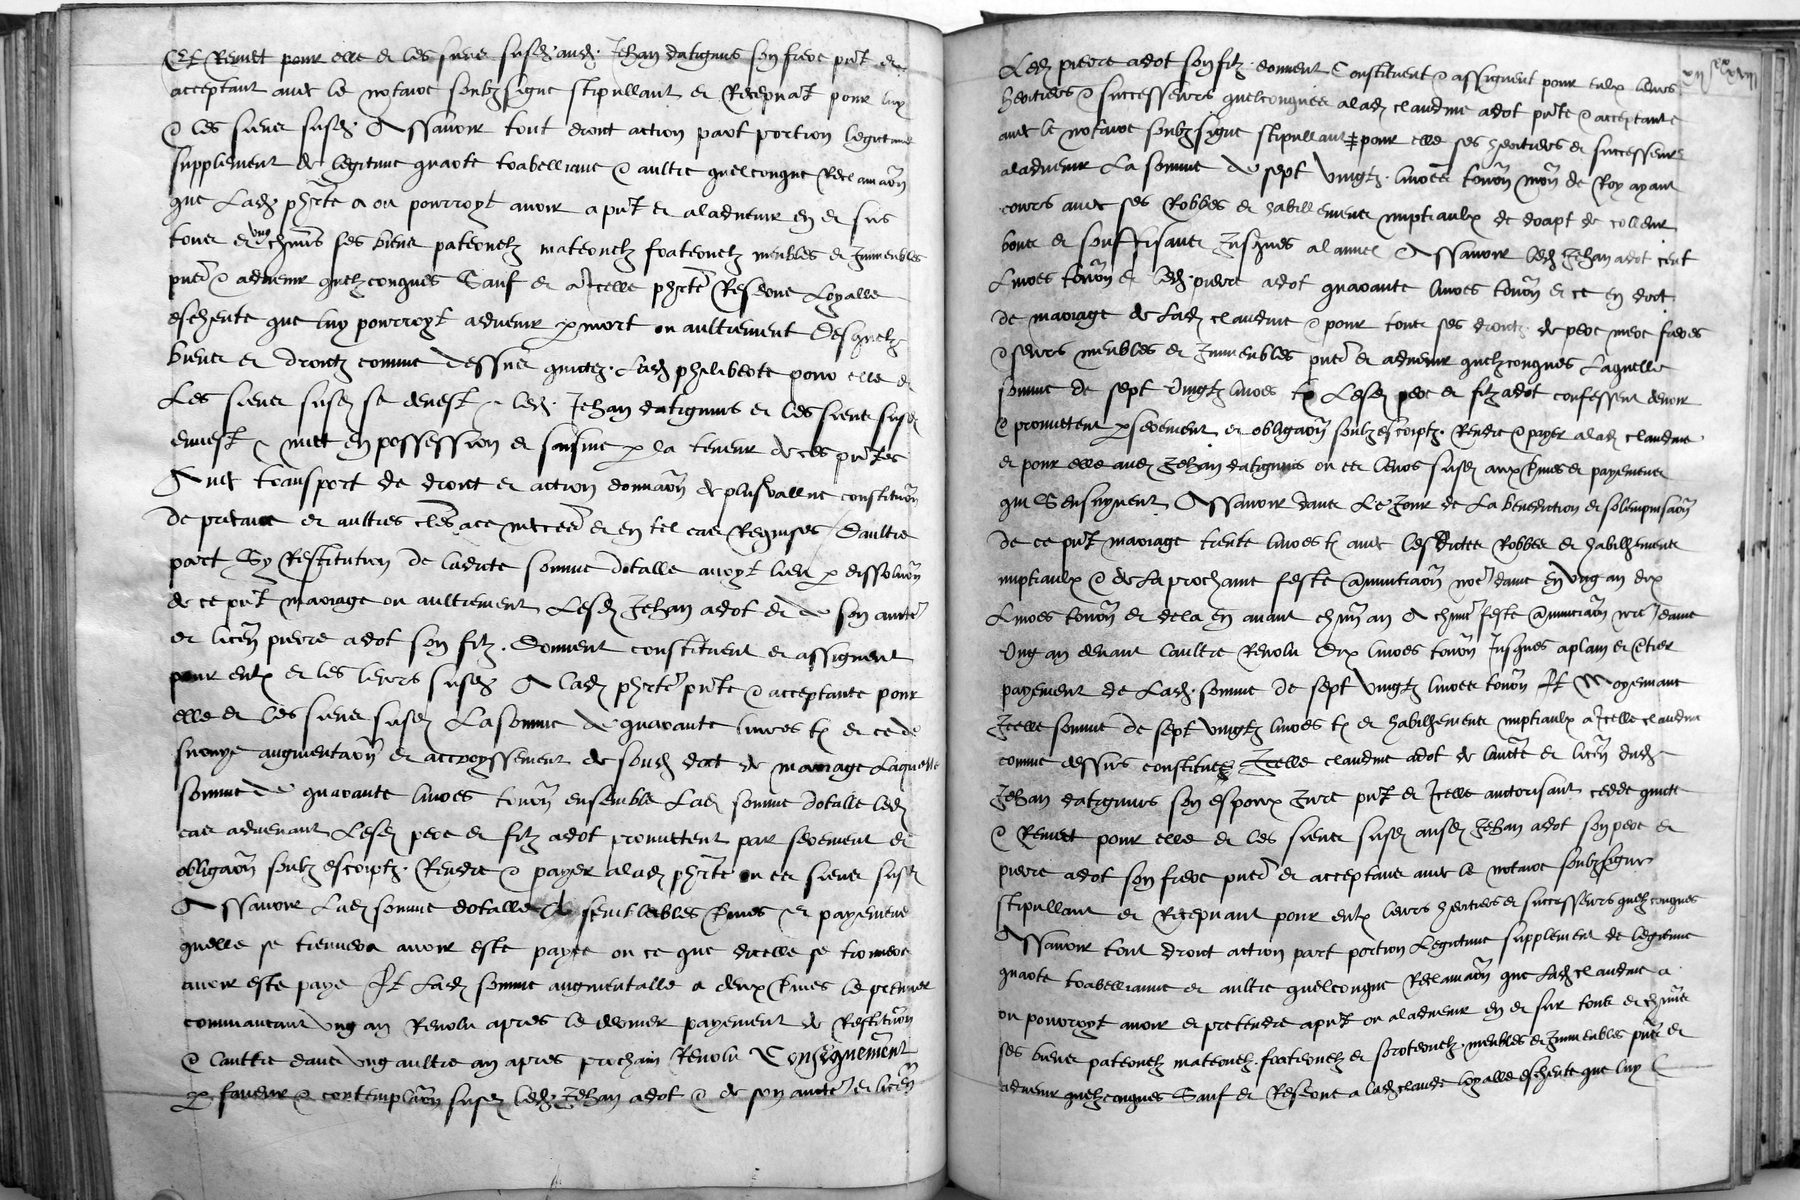 Et Remet pour elle et les siens susd. aud. Jehan datignus son frere pnt et
acceptant avec le notaire soubzsigne stipullant et Recepvat pour luy
et les siens susd. Assavoir tout droict action part portion legitime
supplement de legitime quarte trabelliane et aultre quelconque Reclamaon
que Lad. phrte a ou pourroyt avoir a pnt et aladvenir en et sus
tous et ung chmns ses biens paternelz maternelz fraternelz meubles et Immeubles
pns et advenir quelzconques Sauf et a Icelle phrte Reserve Loyalle
escheute que luy pourroyt advenir p mort ou aultrement Desquelz
biens et droictz comme dessus quictez. Lad. philiberte pour elle et
Les siens susd se devest et led. Jehan datignus et les siens susd
envest et met en possession et saisine p la teneur de ces pntes
Avec transport de droict et action donnaon de plusvallue constituon
de precaire et aultres clēs ace necceēs et en tel cas Requises Daultre
part Sy Restitution de ladicte somme dotalle avoyt lieu p dissoluon
de ce pnt mariage ou aultrement Lesd. Jehan adot et de son aucte
et licen pierre adot son filz. Donnent constituent et assignent
pour eulx et les leurs susd. A lad phrte pnte et acceptante pour
elle et les siens susd La somme de quarante livres tz et ce de
suroys augmentaon et accroyssement de soud. dot de mariage Laquelle
somme de quarante livres tourn ensemble Lad somme dotalle led
cas advenant Lesd pere et filz adot promettent par serement et
obligaon soubz escriptz. Rendre et payer alad phrte ou es siens susd
Assavoir Lad somme dotalle A semblables tmes et payemens
quelle se treuvera avoir este payee ou ce que dicelle se trouvera
avoir este paye Et Lad somme augmentalle a deux tmes le premier
commancant ung an Revolu apres le dernier payement de Restituon
et laultre dans ung aultre an apres prochain Revolu Consequement
p faveur et contemplaon susd led. Jehan adot et de son aucte et licen
Led pierre adot son filz. donnent Constituent et assignent pour eulx leurs
heritiers et successeurs quelconques alad claudine adot pnte et acceptante
avec le notaire soubzsigne stipullant pour elle ses heritiers et successeurs
aladvenir La somme de sept vingtz livres tourn mon de Roy ayant
cours avec ses Robbes et habillemens nuptiaulx de drapt de colleur
bons et souffisans Jusques alannel Assavoir led Jehan adot cent
Livres tourn et led. pierre adot quarante livres tourn et ce en dot
de mariage de Lad claudine et pour tous ses droictz. de pere mere freres
et seurs meubles et Immeubles pns et advenir quelzconques Laquelle
somme de sept vingtz livres tz Lesd pere et filz adot confessent devoir
et promettent p serement et obligaon soubz escriptz. Rendre et payer alad claudine
et pour elle aud Jehan datignus ou es leurs susd aux tmes et payemens
qui Sensuyvent Assavoir dans Le Jour de La benediction et solempnisaon
de ce pnt mariage trente livres tz avec lesdictes Robbes et habillemens
nuptiaulx et de La prochaine feste Anunciaon nre dame En ung an dix
Livres tourn et de la en avant chun an A chune feste Anunciaon nre dame
Ung an devant laultre Revolu Dix livres tourn Jusques aplain et entier
payement de Lad. somme de sept vingtz livres tourn Et Moyennant
Icelle somme de sept vingtz livres tz et habillemens nuptiaulx a Icelle claudine
comme dessus constituez Icelle claudine adot de laucte et licen dud
Jehan datignus son espoux Jure pnt et Icelle auctorisant cedde quicte
et Remet pour elle et les siens susd ausd Jehan adot son pere et
pierre adot son frere pns et acceptans avec le notaire soubzsigne
stipullant et Recepvant pour eulx leurs heritiers et successeurs quelzconques
Assavoir tout droict action part portion Legitime supplement de legitime
quarte trabellianne et aultre quelconque Reclamaon que Lad claudine a
ou pourroyt avoir et pretendre apnt ou aladvenir en et sur tous et chuns
ses biens paternelz maternelz. fraternelz et sororernelz. meubles et Immeubles pns et
advenir quelzconques Sauf et Reserve a lad. claude loyalle escheute que luy